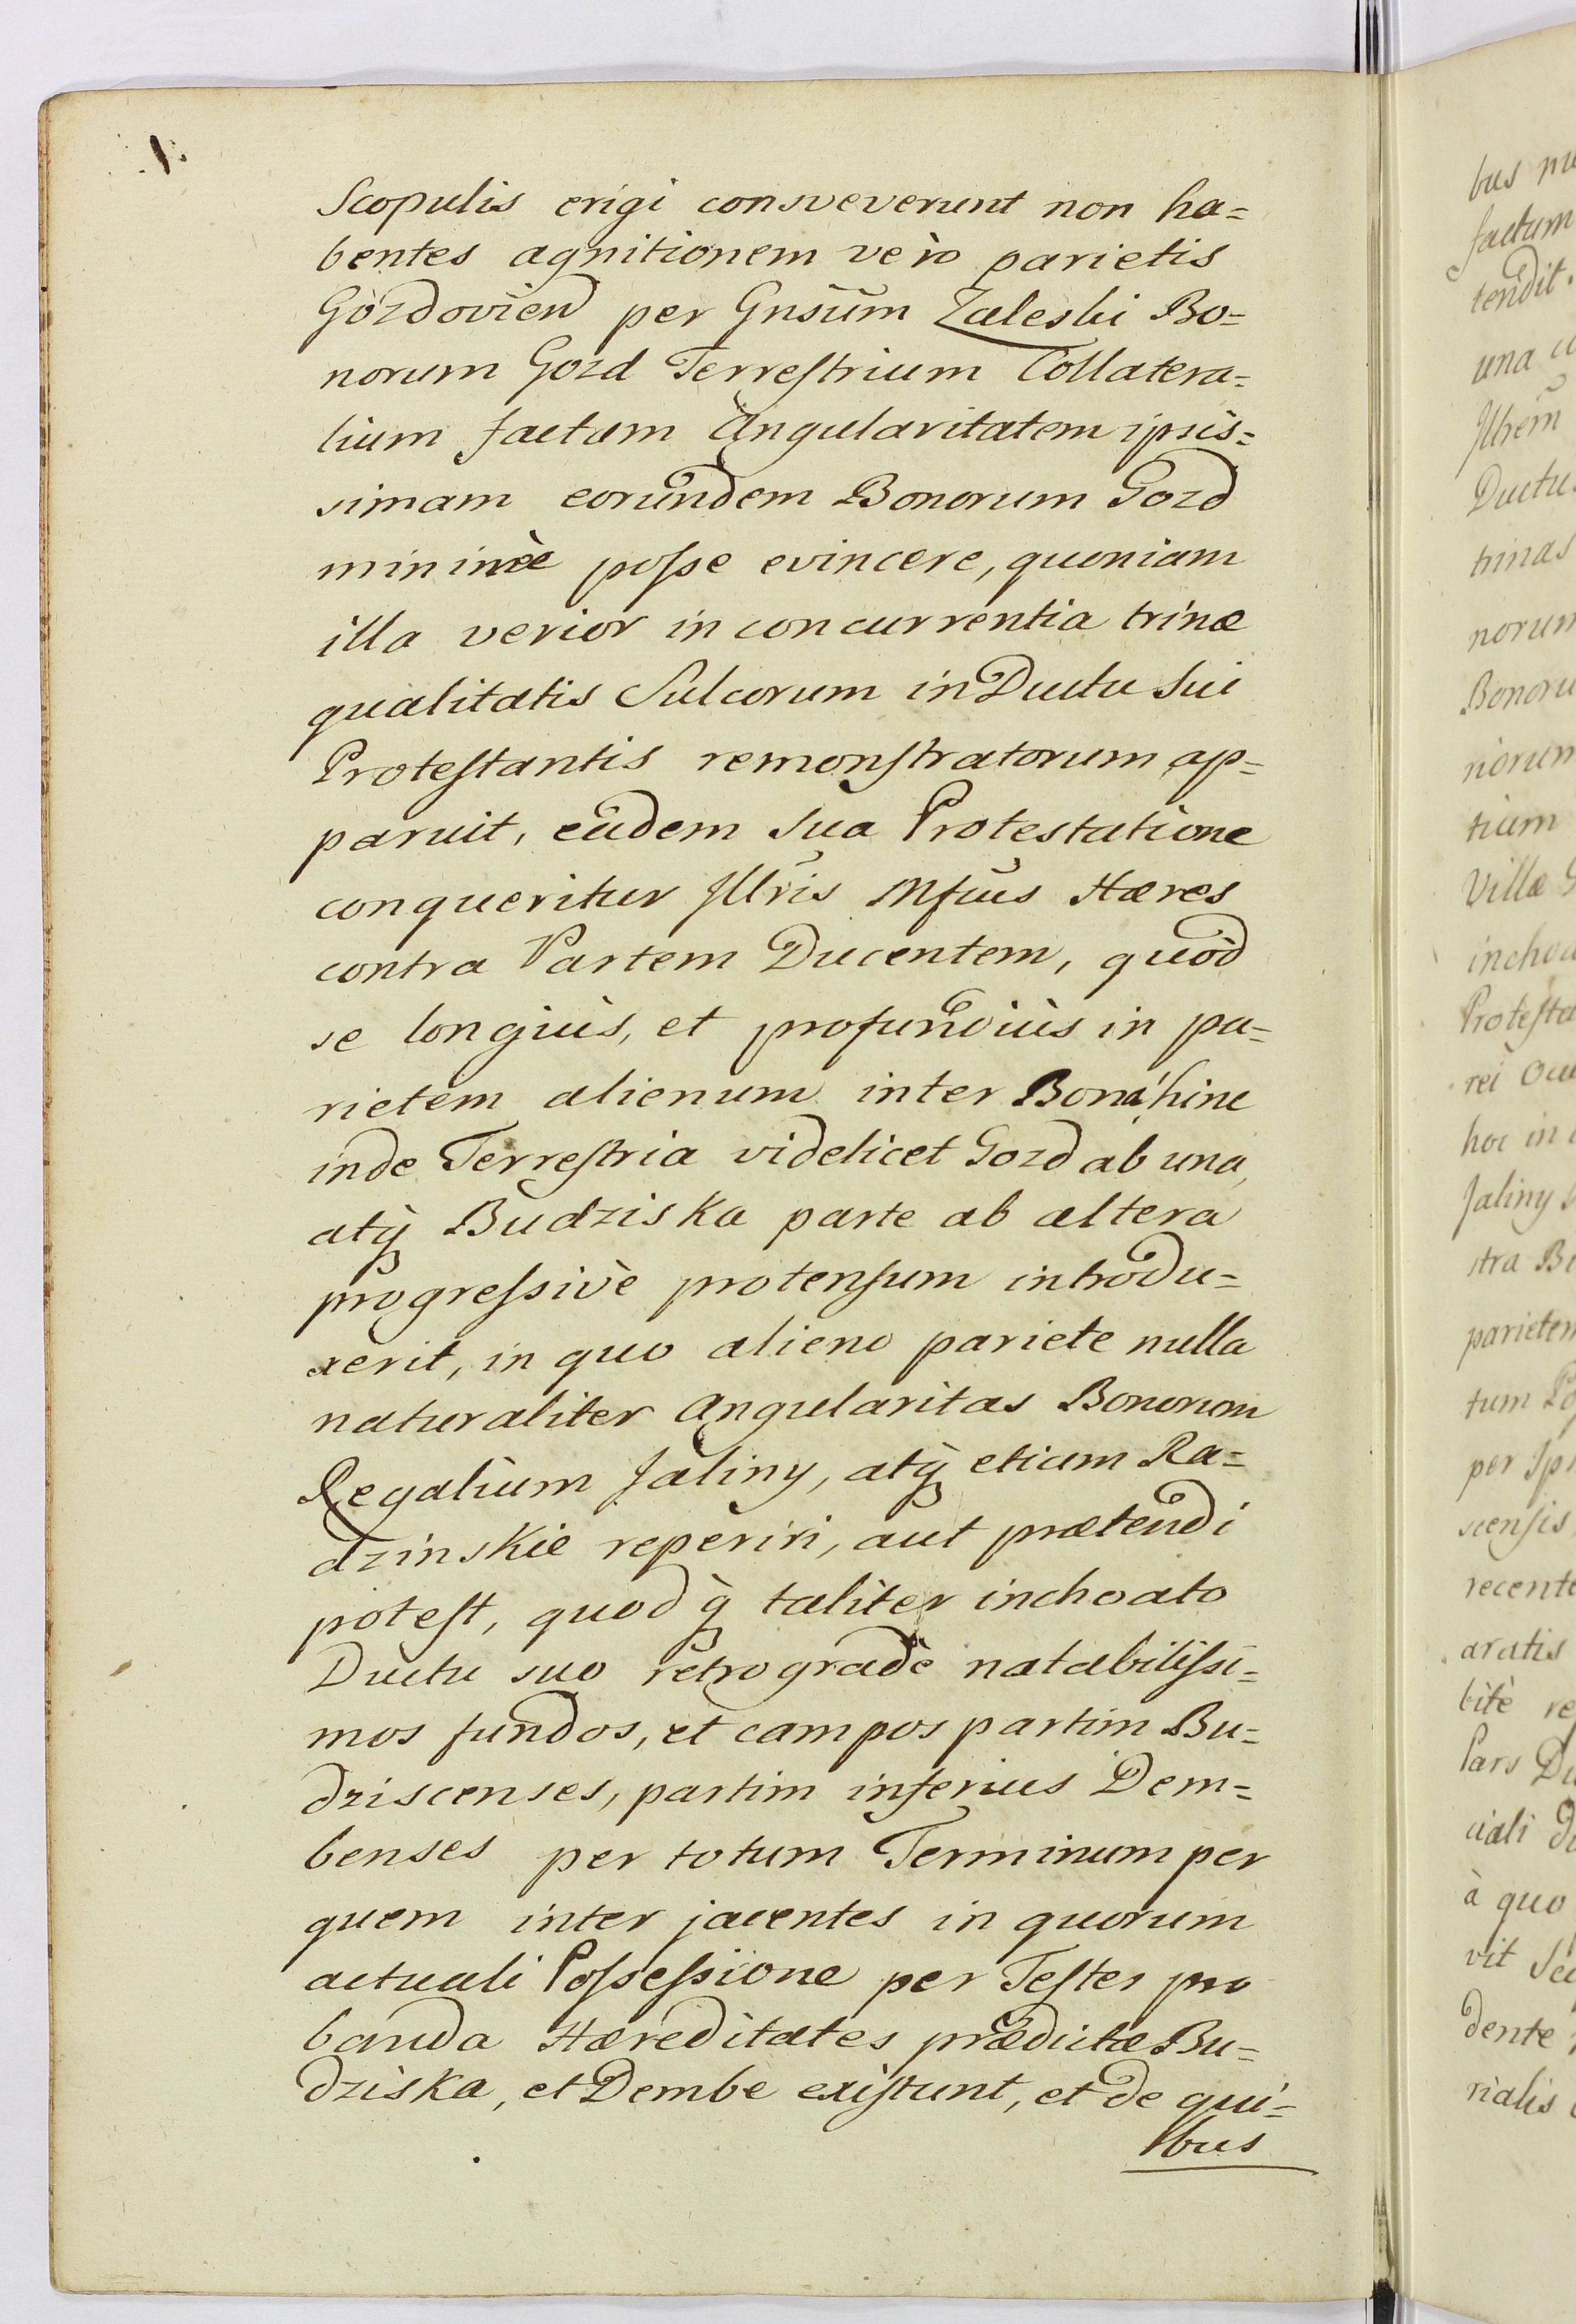 Scopulis erigi consveverunt non ha=
bentes agnitionem verò parietis
Gozdovien per Gnsum Zaleski Bo=
norum Gozd Terrestrium Collatera=
lium factam Angularitatem ipsis=
simam eorundem Bonorum Gozd
minimè posse evincere, quoniam
illa verior in concurrentia trinæ
qualitatis Sulcorum in Ductu sui
Protestantis remonstratorum ap=
paruit, eâdem sua Protestatione
conqueritur Illris Mfcus Hæres
contra Partem Ducentem, quòd
se longiùs, et profundiùs in pa=
rietem alienum inter Bona hinc
inde Terrestria videlicet Gozd ab una,
atq; Budziska parte ab altera
progressivè protensum introdu=
xerit, in quo alieno pariete nulla
naturaliter Angularitas Bonorum
Regalium Jaliny, atq; etiam Ra=
dzinskie reperiri, aut prætendi
potest, quodq; taliter inchoato
Ductu suo retrogradè natabilissi=
mos fundos, et campos partim Bu=
dziscenses, partim inferius Dem=
benses per totum Terminum per
quem inter jacentes in quorum
actuali Possessione per Testes pro
banda Hæreditates prædictæ Bu=
dziska, et Dembe existunt, et de qui=
bus
bus
factum
tendit.
una
Illrem
Ductu
trinas
norum
Bonoru
niorum
tium
Villæ
inchoa
Protesta
rei
hoc in
Jaliny
stra
parietem
tum
per
scensis
recente
aratis
bitè
Pars
ciali
à quo
vit
dente
rialis